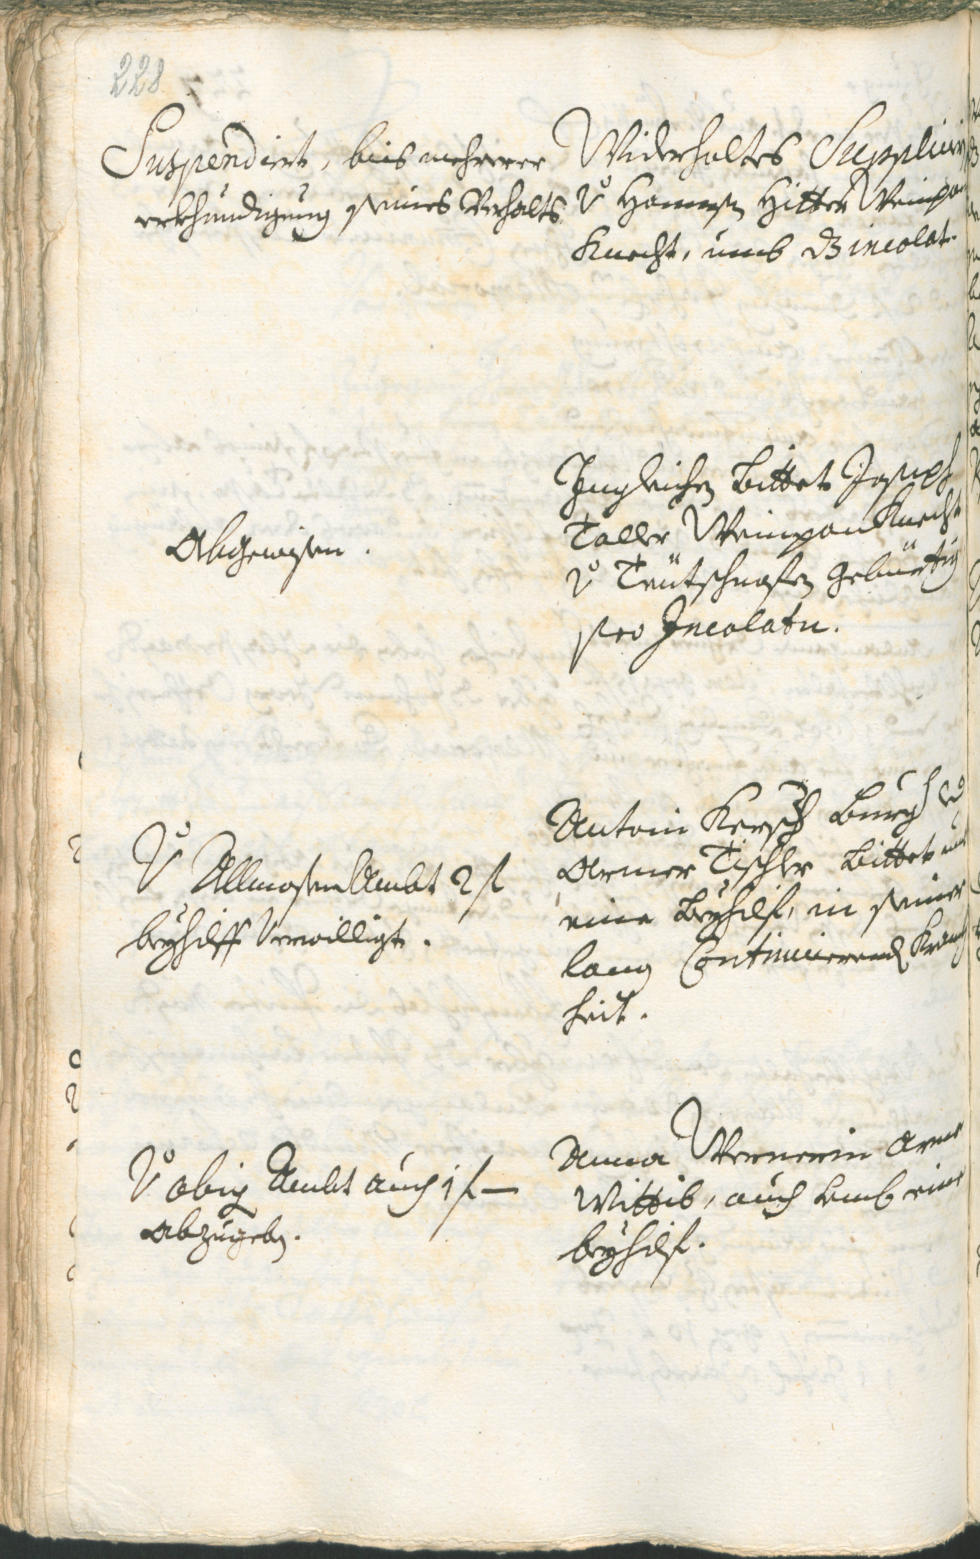 228
Suspendiert, bis mehrerer
erkhundigung seines Verhalts
Widerholtes Supplicirn
V Hannsen Hitter Weinpau
Knecht, umb D Incolat.
Abgewisen.
Ingleichen Bittet Joseph
Taller Weinpau Knecht
V Teütschnofen gebürtig
pro Incolatu.
V Allmosen Ambt 2 f
beyhilff Verwilligt.
Antoni Kersch Burg. und
Armer Tischler Bittet umb
eine Beyhilf, in seiner
lang Continuierend Kranck
heit.
V obig Ambt auch 1 f —
abzugeben.
Anna Wernerin arme
Wittib, auch umb eine
beyhilf.